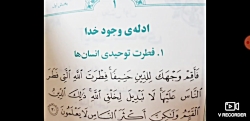 ۱
ادله‌ی وجود خدا
۱. فطرت توحیدی انسان‌ها
فَأَقِمْ وَجْهَكَ لِلدِّينِ حَنِيفًا ۚ فِطْرَتَ اللَّهِ الَّتِي فَطَرَ
النَّاسَ عَلَيْهَا ۚ لَا تَبْدِيلَ لِخَلْقِ اللَّهِ ۚ ذَٰلِكَ الدِّينُ
الْقَيِّمُ وَلَٰكِنَّ أَكْثَرَ النَّاسِ لَا يَعْلَمُونَ
V RECORDER